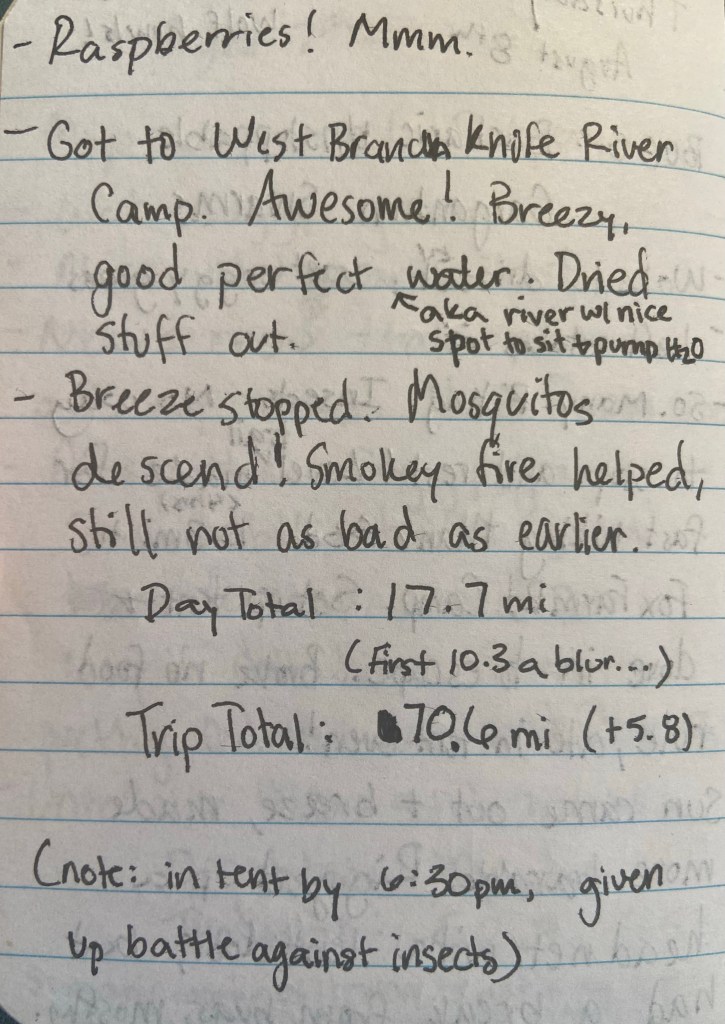 - Raspberries! Mmm.
- Got to West Branch Knife River
Camp. Awesome! Breezy,
good perfect water. Dried
↖aka river w/ nice
stuff out.
spot to sit & pump H2O
- Breeze stopped. Mosquitos
descend! Smokey fire helped,
still not as bad as earlier.
Day Total: 17.7 mi
(First 10.3 a blur...)
Trip Total: 70.6 mi (+5.8)
(note: in tent by 6:30pm, given
up battle against insects)